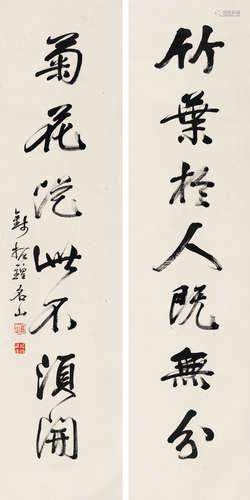 竹葉於人既無分
菊花從此不須開
錢振鍠名山